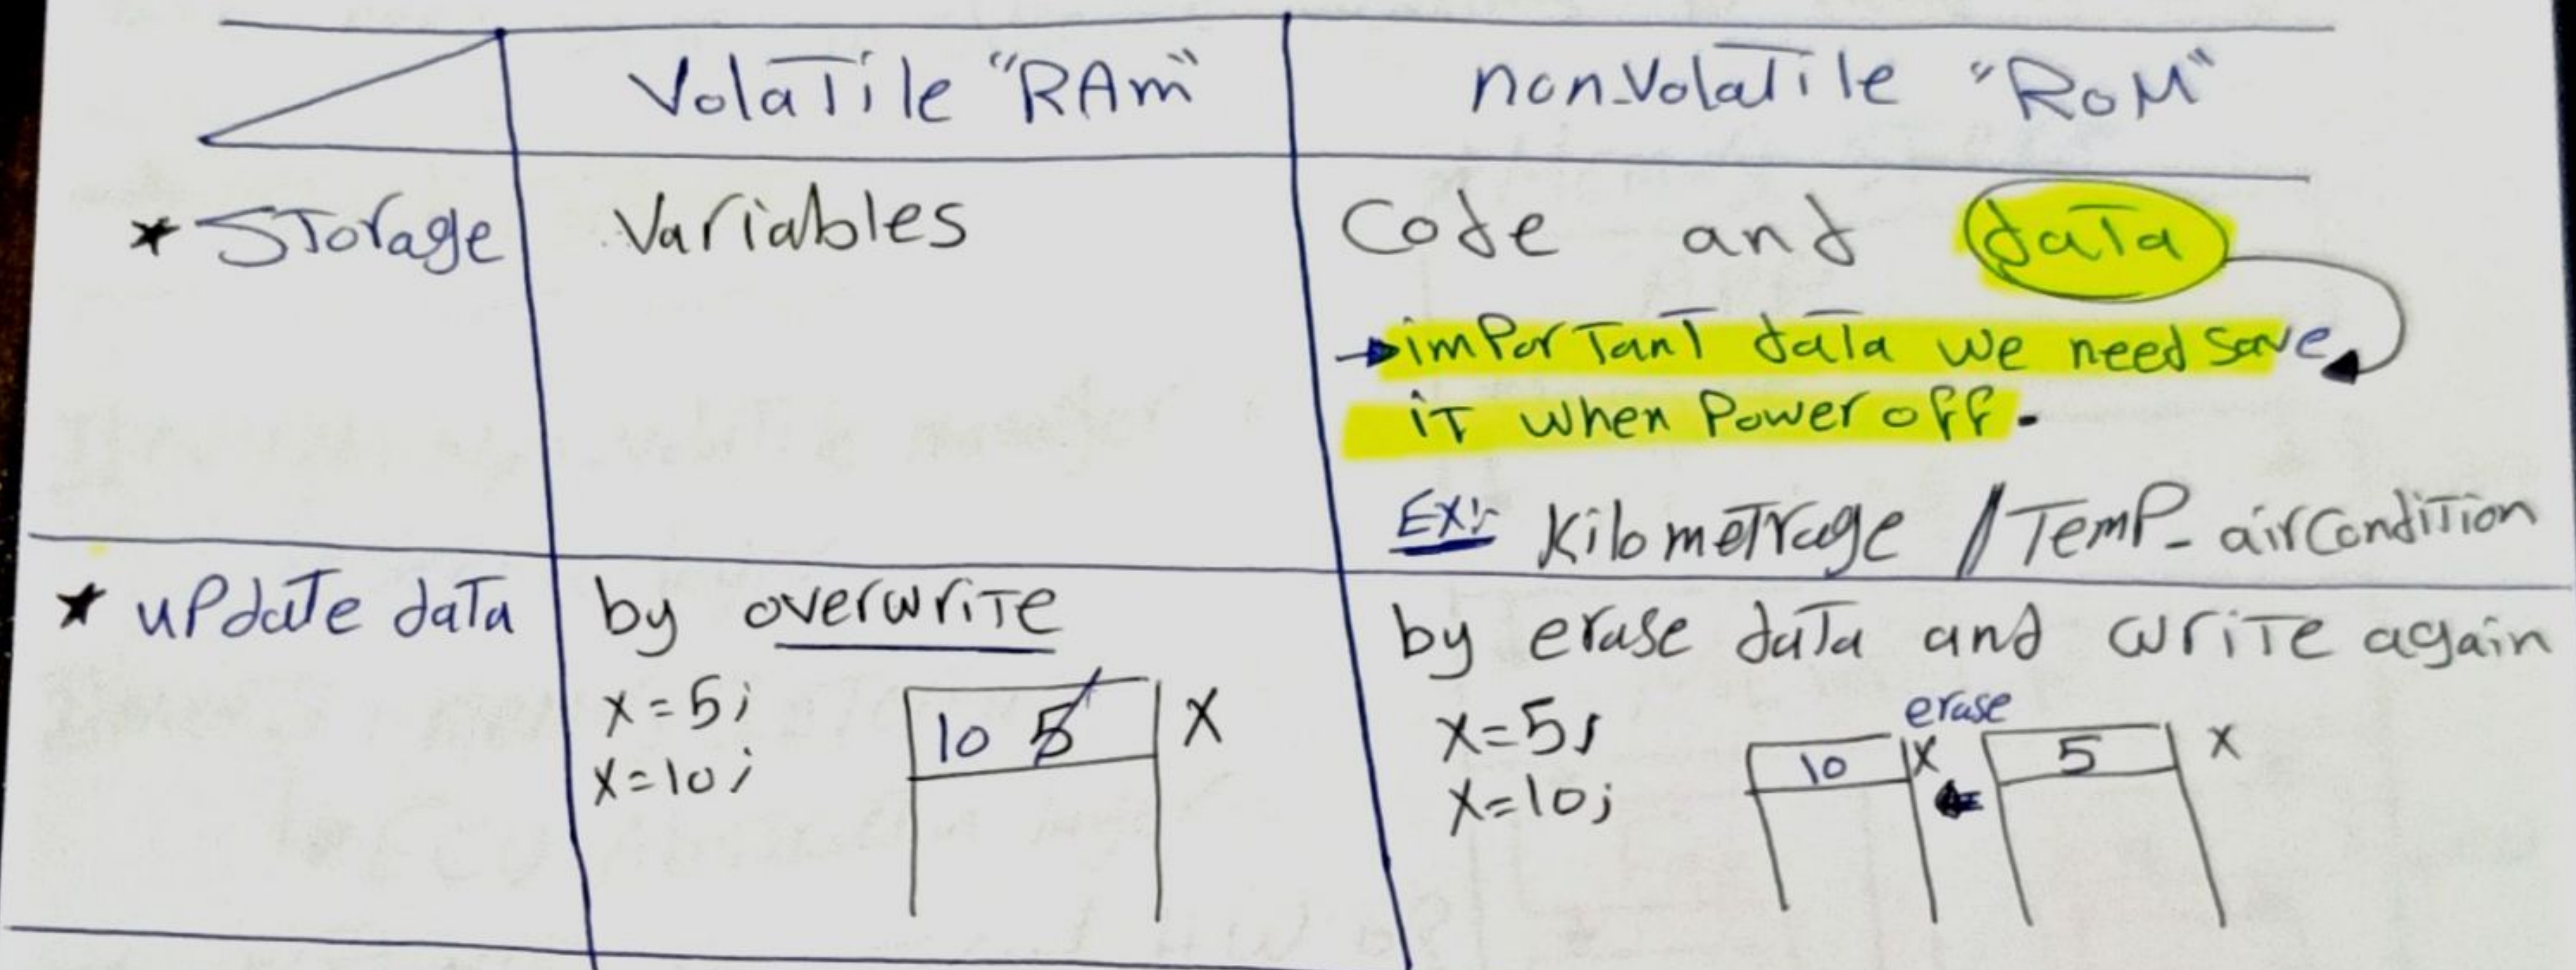 Volatile "RAM"
non-Volatile "ROM"
* Storage
Variables
Code and data
→ important data we need save
it when Power off.
EX:- Kilometrage / Temp- aircondition
* update data
by overwrite
x = 5;
x = 10;
10 5 X
by erase data and write again
x = 5;
x = 10;
erase
10 X
5 X